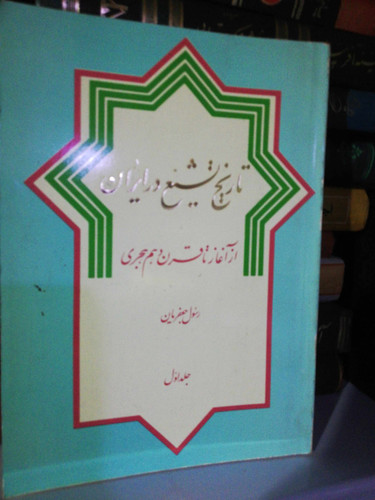 تاریخ تشیع در ایران
از آغاز تا قرن دهم هجری
رسول جعفریان
جلد اول